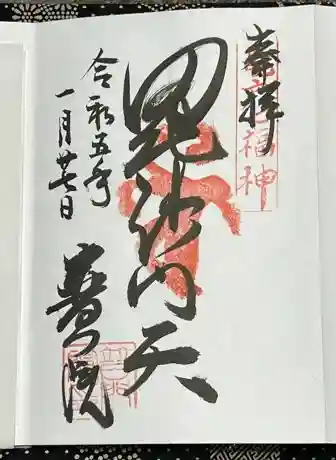 奉拝
福神
毘沙門天
令和五年
一月廿七日
普門院